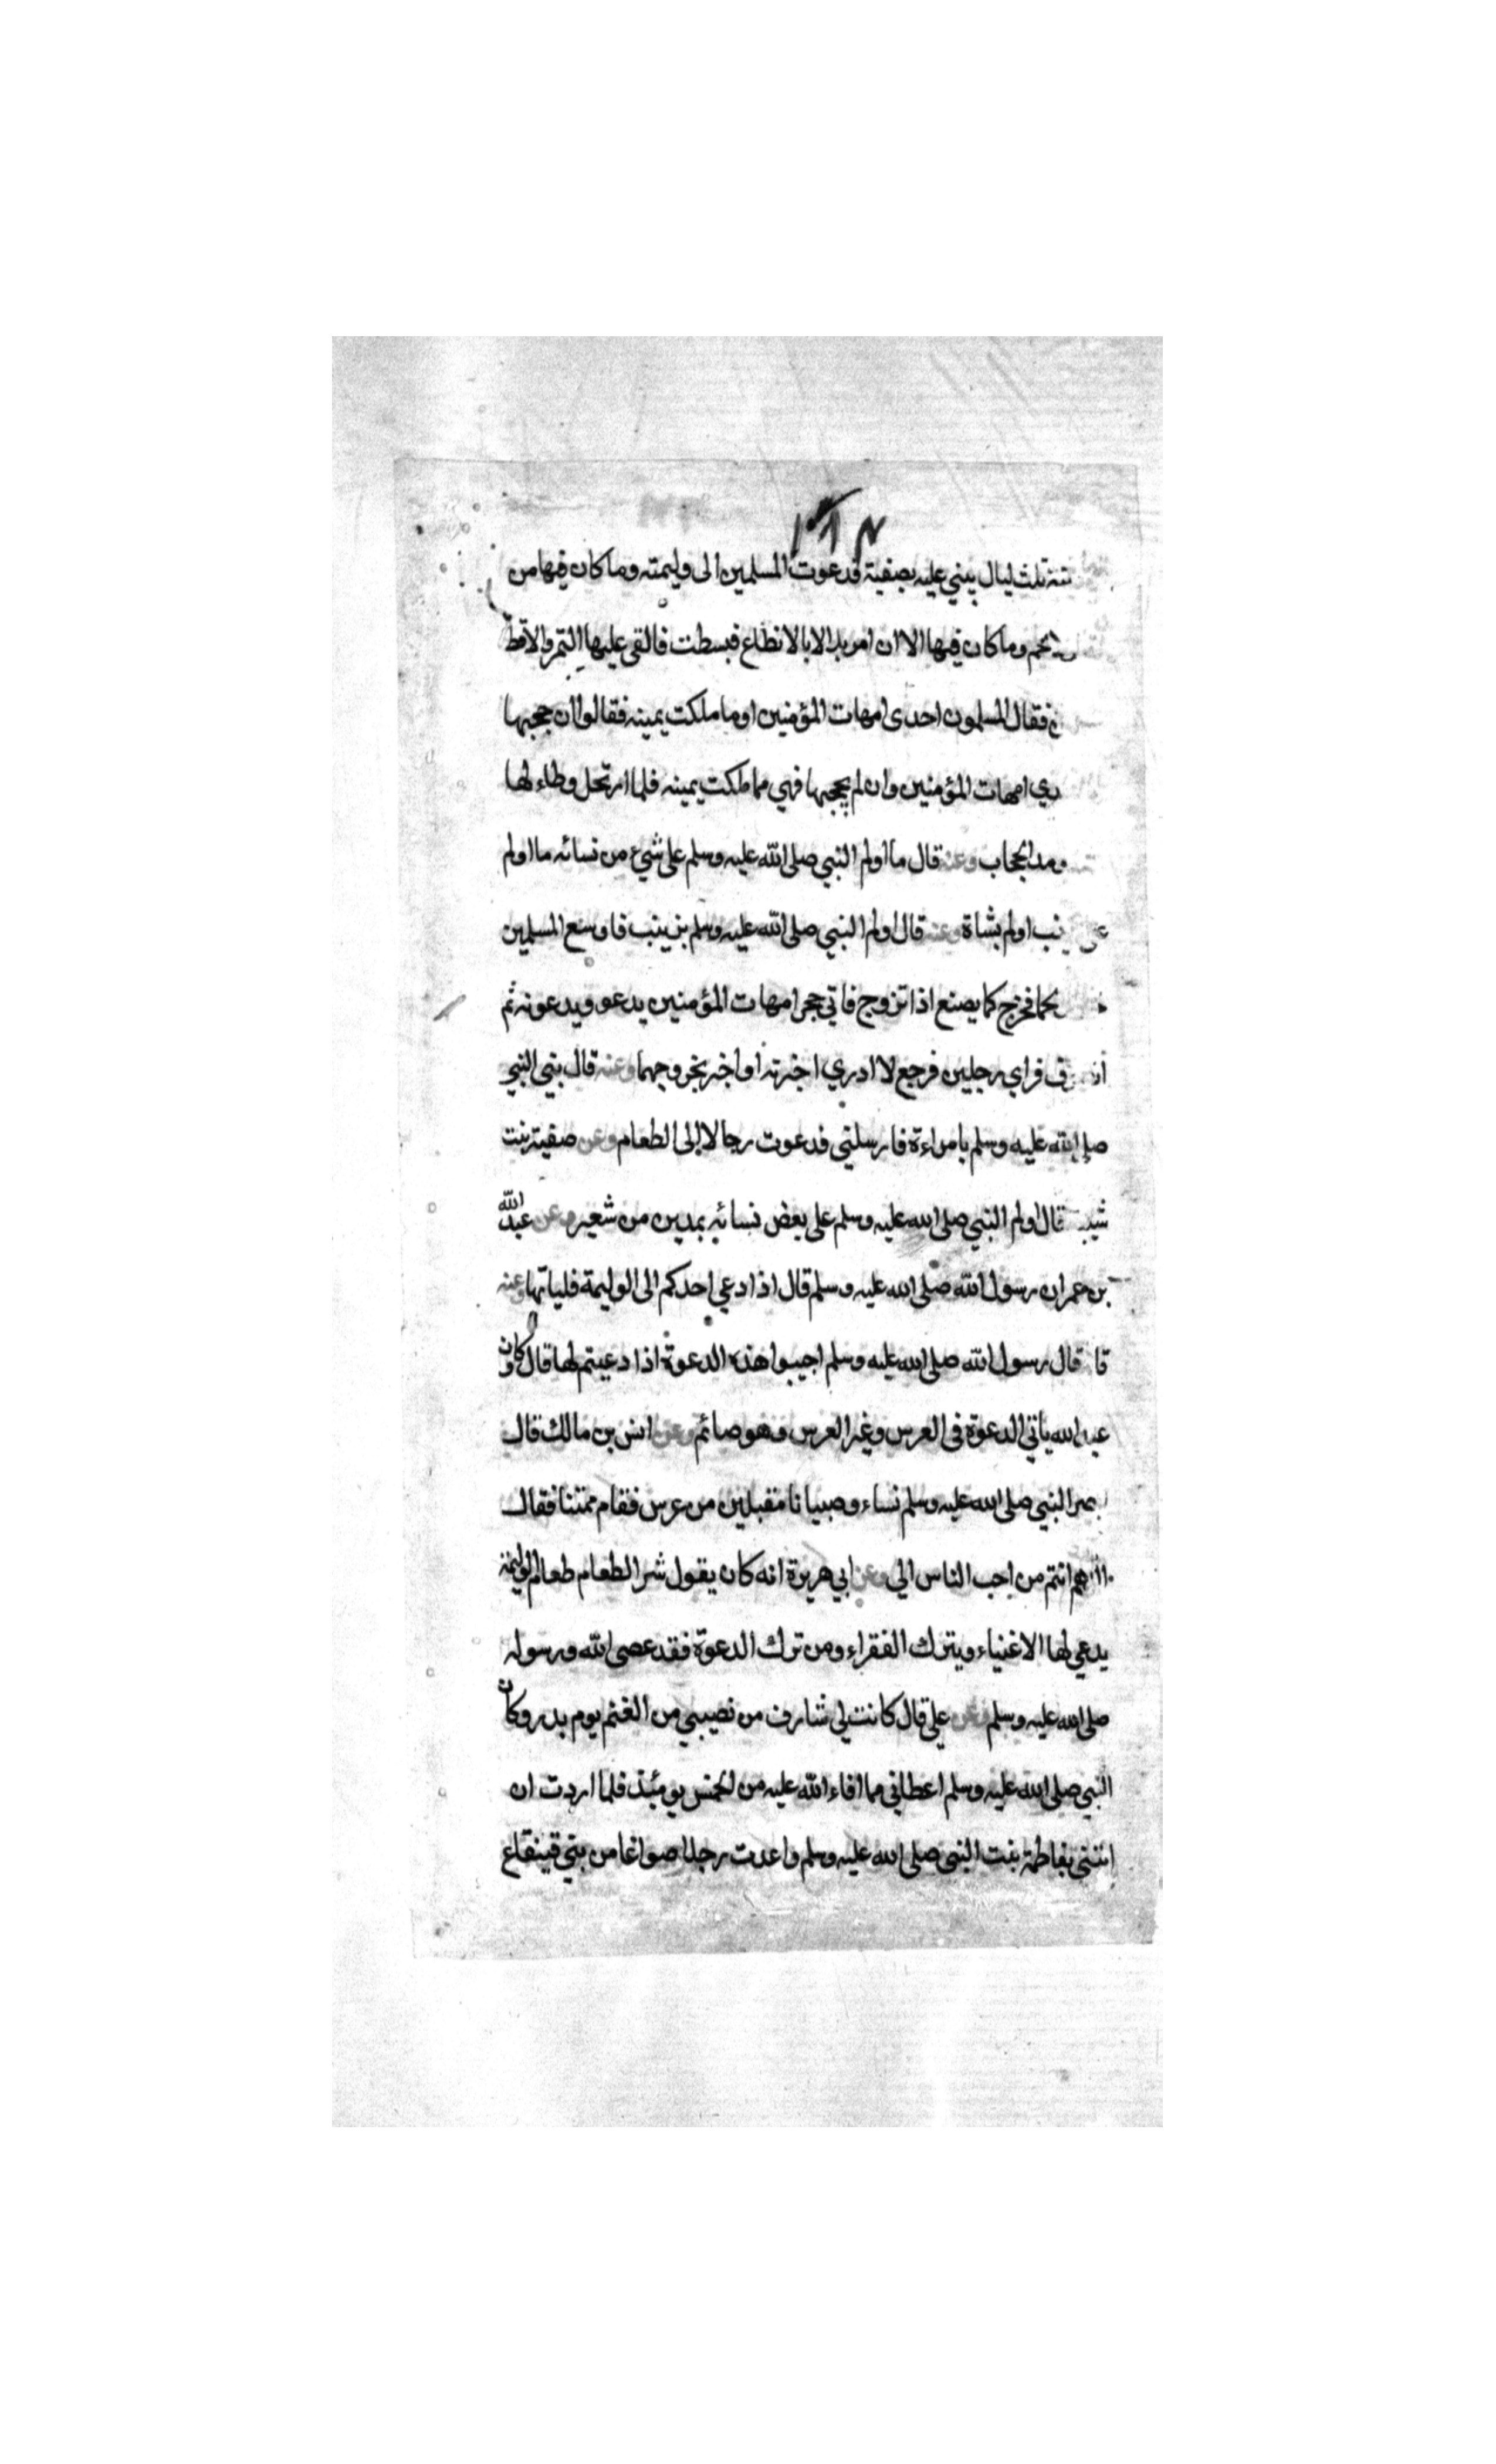 ثلث ليال يبني عليه بصفية فدعوت المسلمين الى وليمته وما كان فيها من
لحم وما كان فيها الا ان امر بلالا بالانطاع فبسطت فالقى عليها التمر والاقط
فقال المسلمون احدى امهات المؤمنين او ما ملكت يمينه فقالوا ان حجبها
امهات المؤمنين وان لم يحجبها فهي مما ملكت يمينه فلما ارتحل وطاء لها
ومد الحجاب وعنه قال ما اولم النبي صلى الله عليه وسلم على شيء من نسائه ما اولم
اولم بشاة وعنه قال اولم النبي صلى الله عليه وسلم بزينب فاوسع المسلمين
فخرج كما يصنع اذا تزوج فاتي حجر امهات المؤمنين يدعو ويدعونه ثم
فراي رجلين فرجع لا ادري اخبرته او اخبر بخروجهما وعنه قال بني النبي
صلى الله عليه وسلم بامراءة فارسلني فدعوت رجالا الى الطعام وعن صفية بنت
قال اولم النبي صلى الله عليه وسلم على بعض نسائه بمدين من شعير وعن عبد الله
بن عمر ان رسول الله صلى الله عليه وسلم قال اذا دعي احدكم الى الوليمة فلياتها وعنه
قال رسول الله صلى الله عليه وسلم اجيبوا هذه الدعوة اذا دعيتم لها قال وكان
عبد الله ياتي الدعوة في العرس وغير العرس وهو صائم وعن انس بن مالك قال
ابصر النبي صلى الله عليه وسلم نساء وصبيانا مقبلين من عرس فقام ممتنا فقال
اللهم انتم من احب الناس الي وعن ابي هريرة انه كان يقول شر الطعام طعام الوليمة
يدعي لها الاغنياء ويترك الفقراء ومن ترك الدعوة فقد عصى الله ورسوله
صلى الله عليه وسلم وعن علي قال كانت لي شارف من نصيبي من الغنم يوم بدر وكان
النبي صلى الله عليه وسلم اعطاني مما افاء الله عليه من الخمس يومئذ فلما اردت ان
ابتني بفاطمة بنت النبي صلى الله عليه وسلم واعدت رجلا صواغا من بني قينقاع